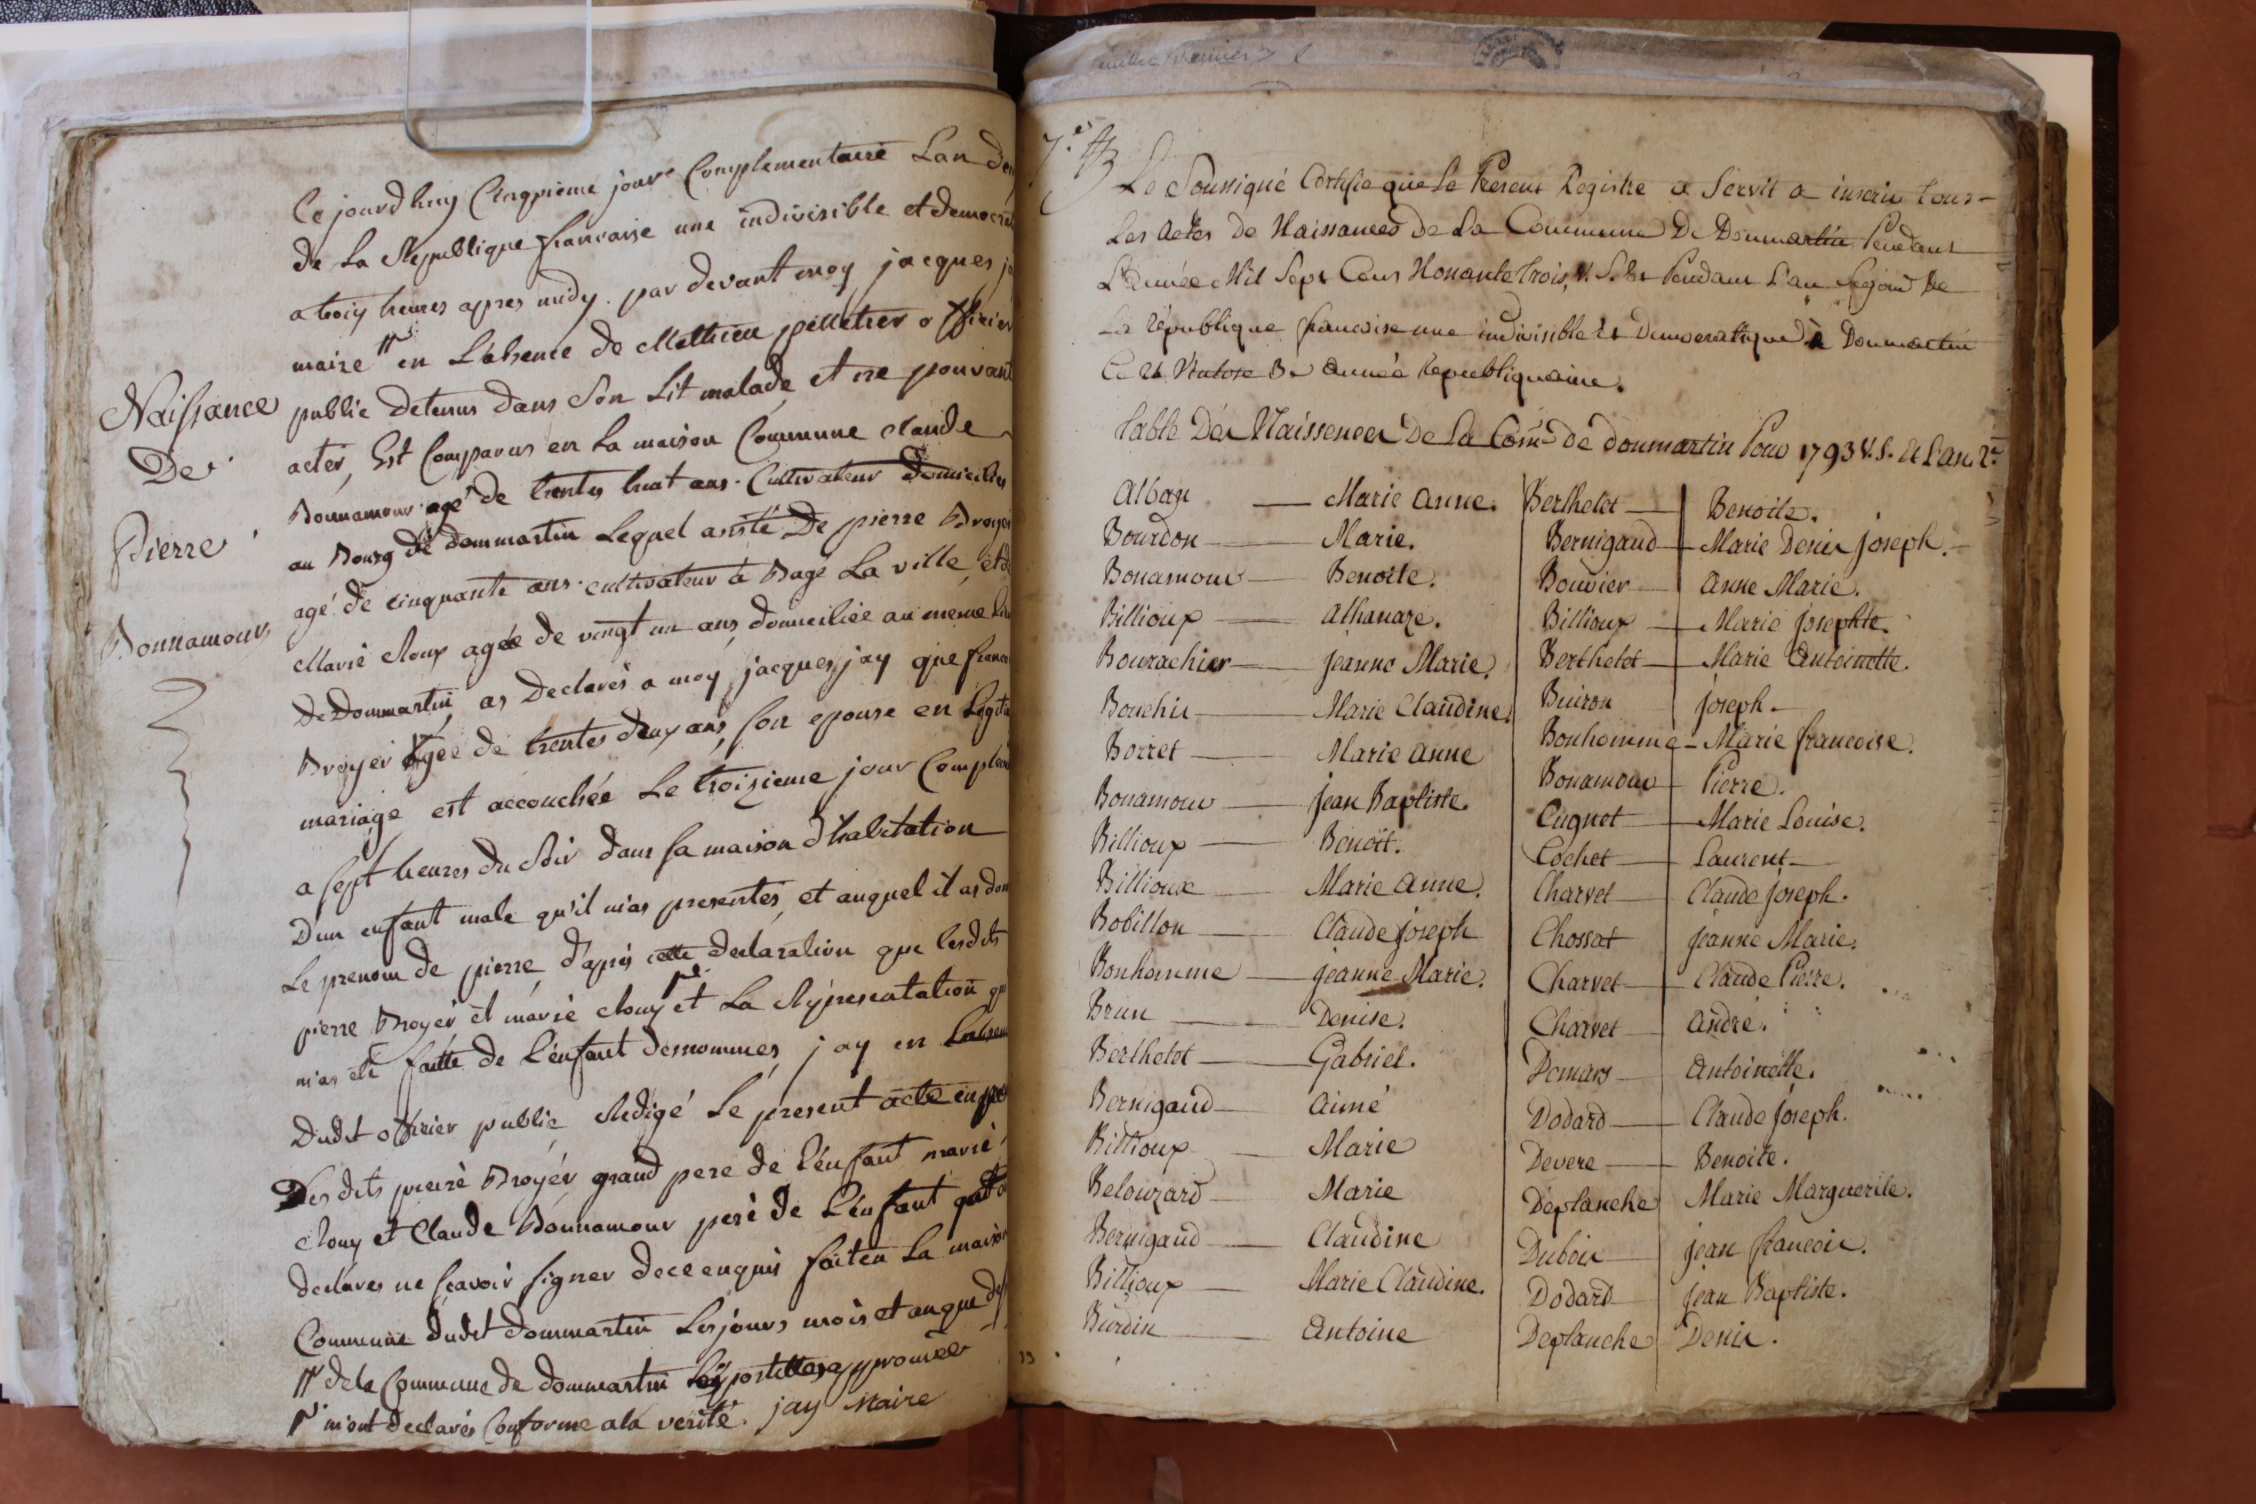 Naissance
De
Pierre
Bonnamour
Ce jourd huy Cinqvieme jour Complementaire Lan de
de La Republique francaise une indivisible et democra
a troiy heures apres midy. par devant moy jacques j
maire # en L'absence de Mathieu pelletier officier
public detenus dans son Lit malade et ne pouvant
acter, Est Comparus en La maison Commune claude
Bonnamour agé de trentes huat ans. Cultivateur domicilies
au Bourg de dommartin Lequel asisté De pierre Broyer
agé de cinquante ans cultivateur à Bagé La ville, et de
Marie cloux agée de vingt un ans, domiciliée au meme Lieu
De Dommartin, as Declarés a moy jacques jay que franc
Broyer Agée de trentes deux ans, son epouse en Legiti
mariage est accouchée Le troizieme jour Complem
a sept heures du soir dans sa maison d'habitation
D'un enfant male qu'il m'as presentés, et auquel il as don
Le prenom de pierre, d'apres cette declaration que lesdits
pierre Broyer et marie clouy et La Represantation qu
m'as été faitte de L'enfant denommes, jay en Labsen
Dudit officier public Redigé Le present acte en pre
Des dits pierre Broyér grand pere de L'enfant marie
clouy et Claude Bonnamour pere de L'enfant qui
declares ne scavoir signer de ce enquis fait en La maison
Commune dudit dommartin Les jours mois et an que des
# de la Commune de dommartin approuvée
m'ont declarés Conforme a la verité. jay Maire
7.e
Le Soussigné Certifie que Le Present Registre a Servit a inscrire tous
Les Actes de Naissances de La Commune De Dommartin Pendant
L'année Mil Sept Cens Nonante trois, V. S. et Pendant L'an Segond De
La république francoise une indivisible Et Democratique à Dommartin
Ce Ventose 3e année Republiquaine.
Table Des Naissences De La Com.e de dommartin Pour 1793 V.S. et L'an 2.e
Alban — Marie Anne.
Bourdon — Marie.
Bonamour — Benoite.
Billioux — Athanaze.
Bourachier — jeanne Marie.
Bouchir — Marie Claudine.
Borret — Marie Anne
Bonamour — jean Baptiste.
Billioux — Benoit.
Billioux — Marie Anne.
Bobillon — Claude joseph
Bonhomme — jeanne Marie.
Brun — Denise.
Berthelet — Gabriel.
Bernigaud — Aimé
Billioux — Marie
Belouzard — Marie
Bernigaud — Claudine
Billioux — Marie Claudine.
Burdin — Antoine
Berthelet — Benoite.
Bernigaud — Marie Denise joseph.
Bouvier — Anne Marie.
Billioux — Marie josephte.
Berthelet — Marie Antoinette.
Buiron joseph —
Bonhomme — Marie francoise.
Bonamour — Pierre.
Cugnot — Marie Louise.
Cochet — Laurent —
Charvet — Claude joseph.
Chossat jeanne Marie.
Charvet — Claude Pierre.
Charvet — André.
Demars — Antoinette.
Dodard — Claude joseph.
Devere — Benoite.
Deplanche Marie Marguerite.
Dubois — jean francois.
Dodard — jean Baptiste.
Deplanche Denis.